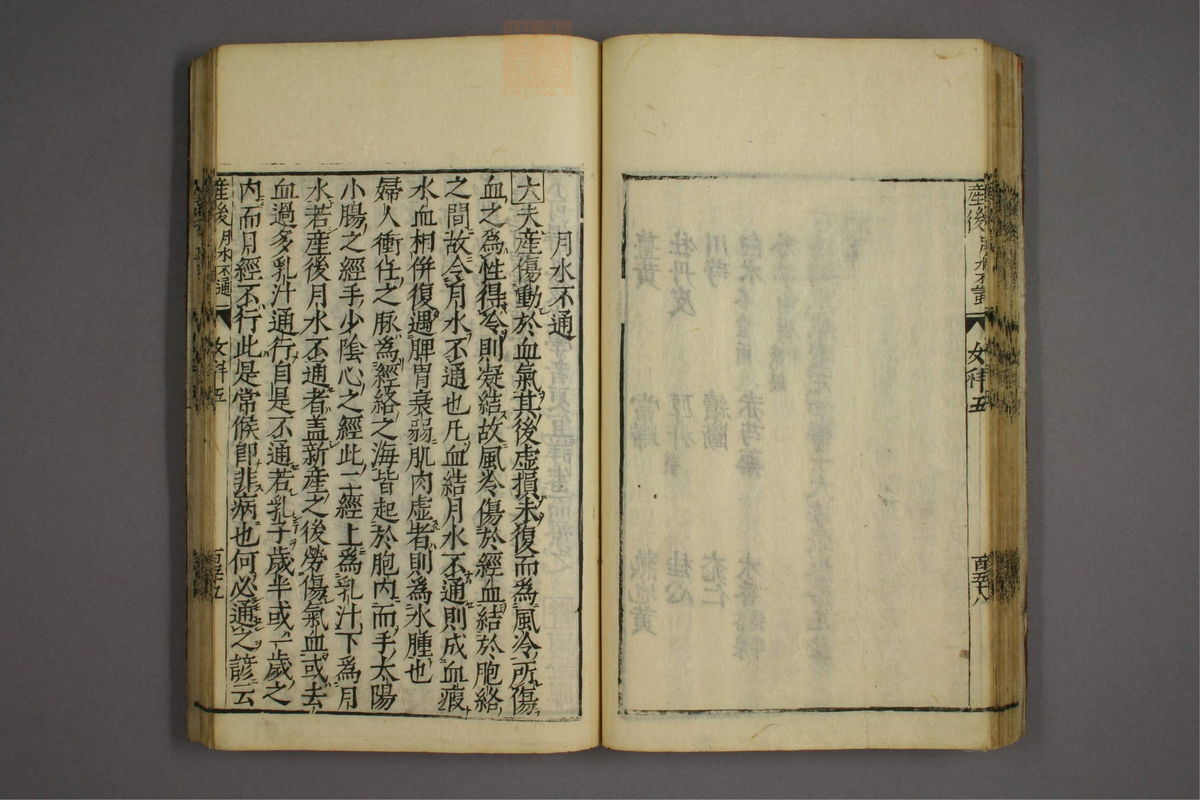 産後 月水不調 女科五 百五十八
月水不通
大夫産傷動於血氣其後虚損未復而為風冷所傷
血之為性得冷則凝結故風冷傷於經血結於胞絡
之間故令月水不通也凡血結月水不通則成血瘕
水血相併復遇脾胃衰弱肌肉虚者則為水腫也
婦人衝任之脉為經絡之海皆起於胞内而手太陽
小腸之經手少陰心之經此二經上為乳汁下為月
水若産後月水不通者盖新産之後勞傷氣血或去
血過多乳汁通行自是不通若乳子歲半或一歲之
内而月經不行此是常候即非病也何必通之諺云
産後 月水不通 女科五